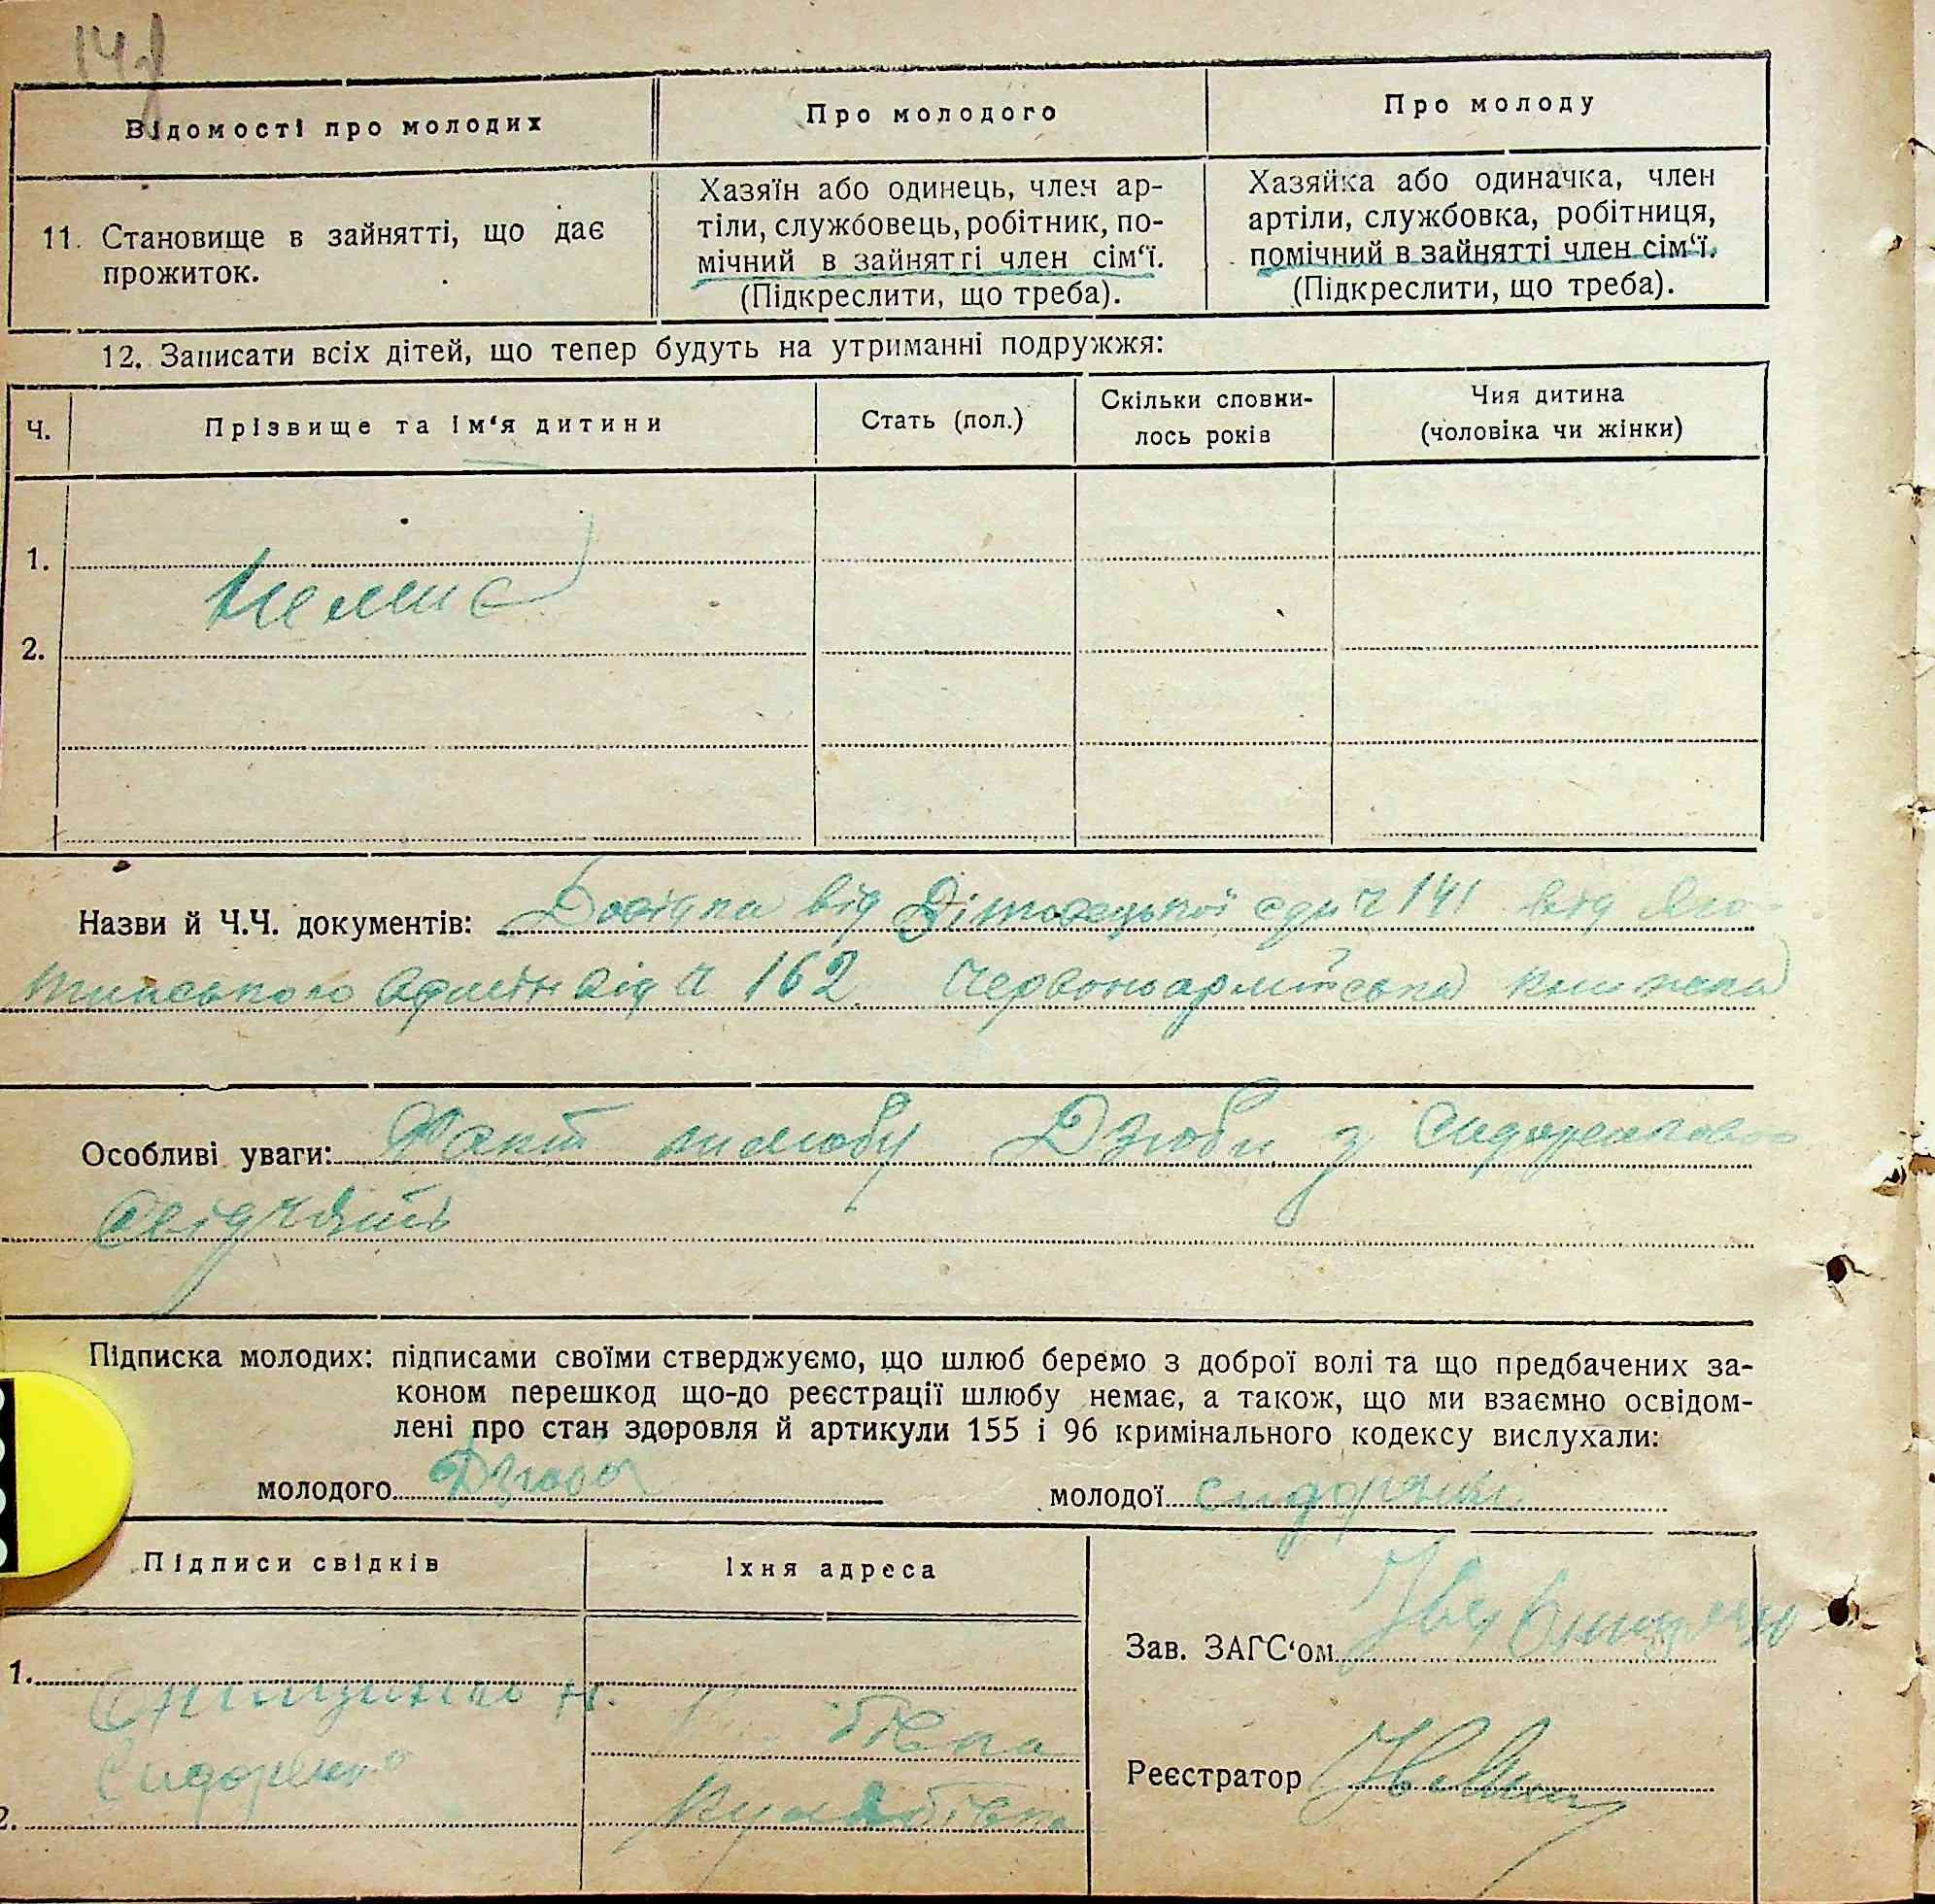 14
Відомості про молодих
Про молодого
Про молоду
11. Становище в зайнятті, що дає
прожиток.
Хазяїн або одинець, член ар-
тіли, службовець, робітник, по-
мічний в зайнятті член сім‘ї.
(Підкреслити, що треба).
Хазяйка або одиначка, член
артіли, службовка, робітниця,
помічний в зайнятті член сім‘ї.
(Підкреслити, що треба).
12. Записати всіх дітей, що тепер будуть на утриманні подружжя:
Ч.
Прізвище та ім‘я дитини
Стать (пол.)
Скільки сповни-
лось років
Чия дитина
(чоловіка чи жінки)
1.
2.
Назви й Ч.Ч. документів: Довідка від ч 141 від Яго-
тинського 162 Червоноармійська книжка
Особливі уваги: Факт шлюбу Дзюби з Сидоренковою
свідчать
Підписка молодих: підписами своїми стверджуємо, що шлюб беремо з доброї волі та що предбачених за-
коном перешкод що-до реєстрації шлюбу немає, а також, що ми взаємно освідом-
лені про стан здоровля й артикули 155 і 96 кримінального кодексу вислухали:
молодого Дзюба
молодої
Підписи свідків
Їхня адреса
Зав. ЗАГС‘ом
1. Н.
Сидоренко
Реєстратор
2.
Кулябівка